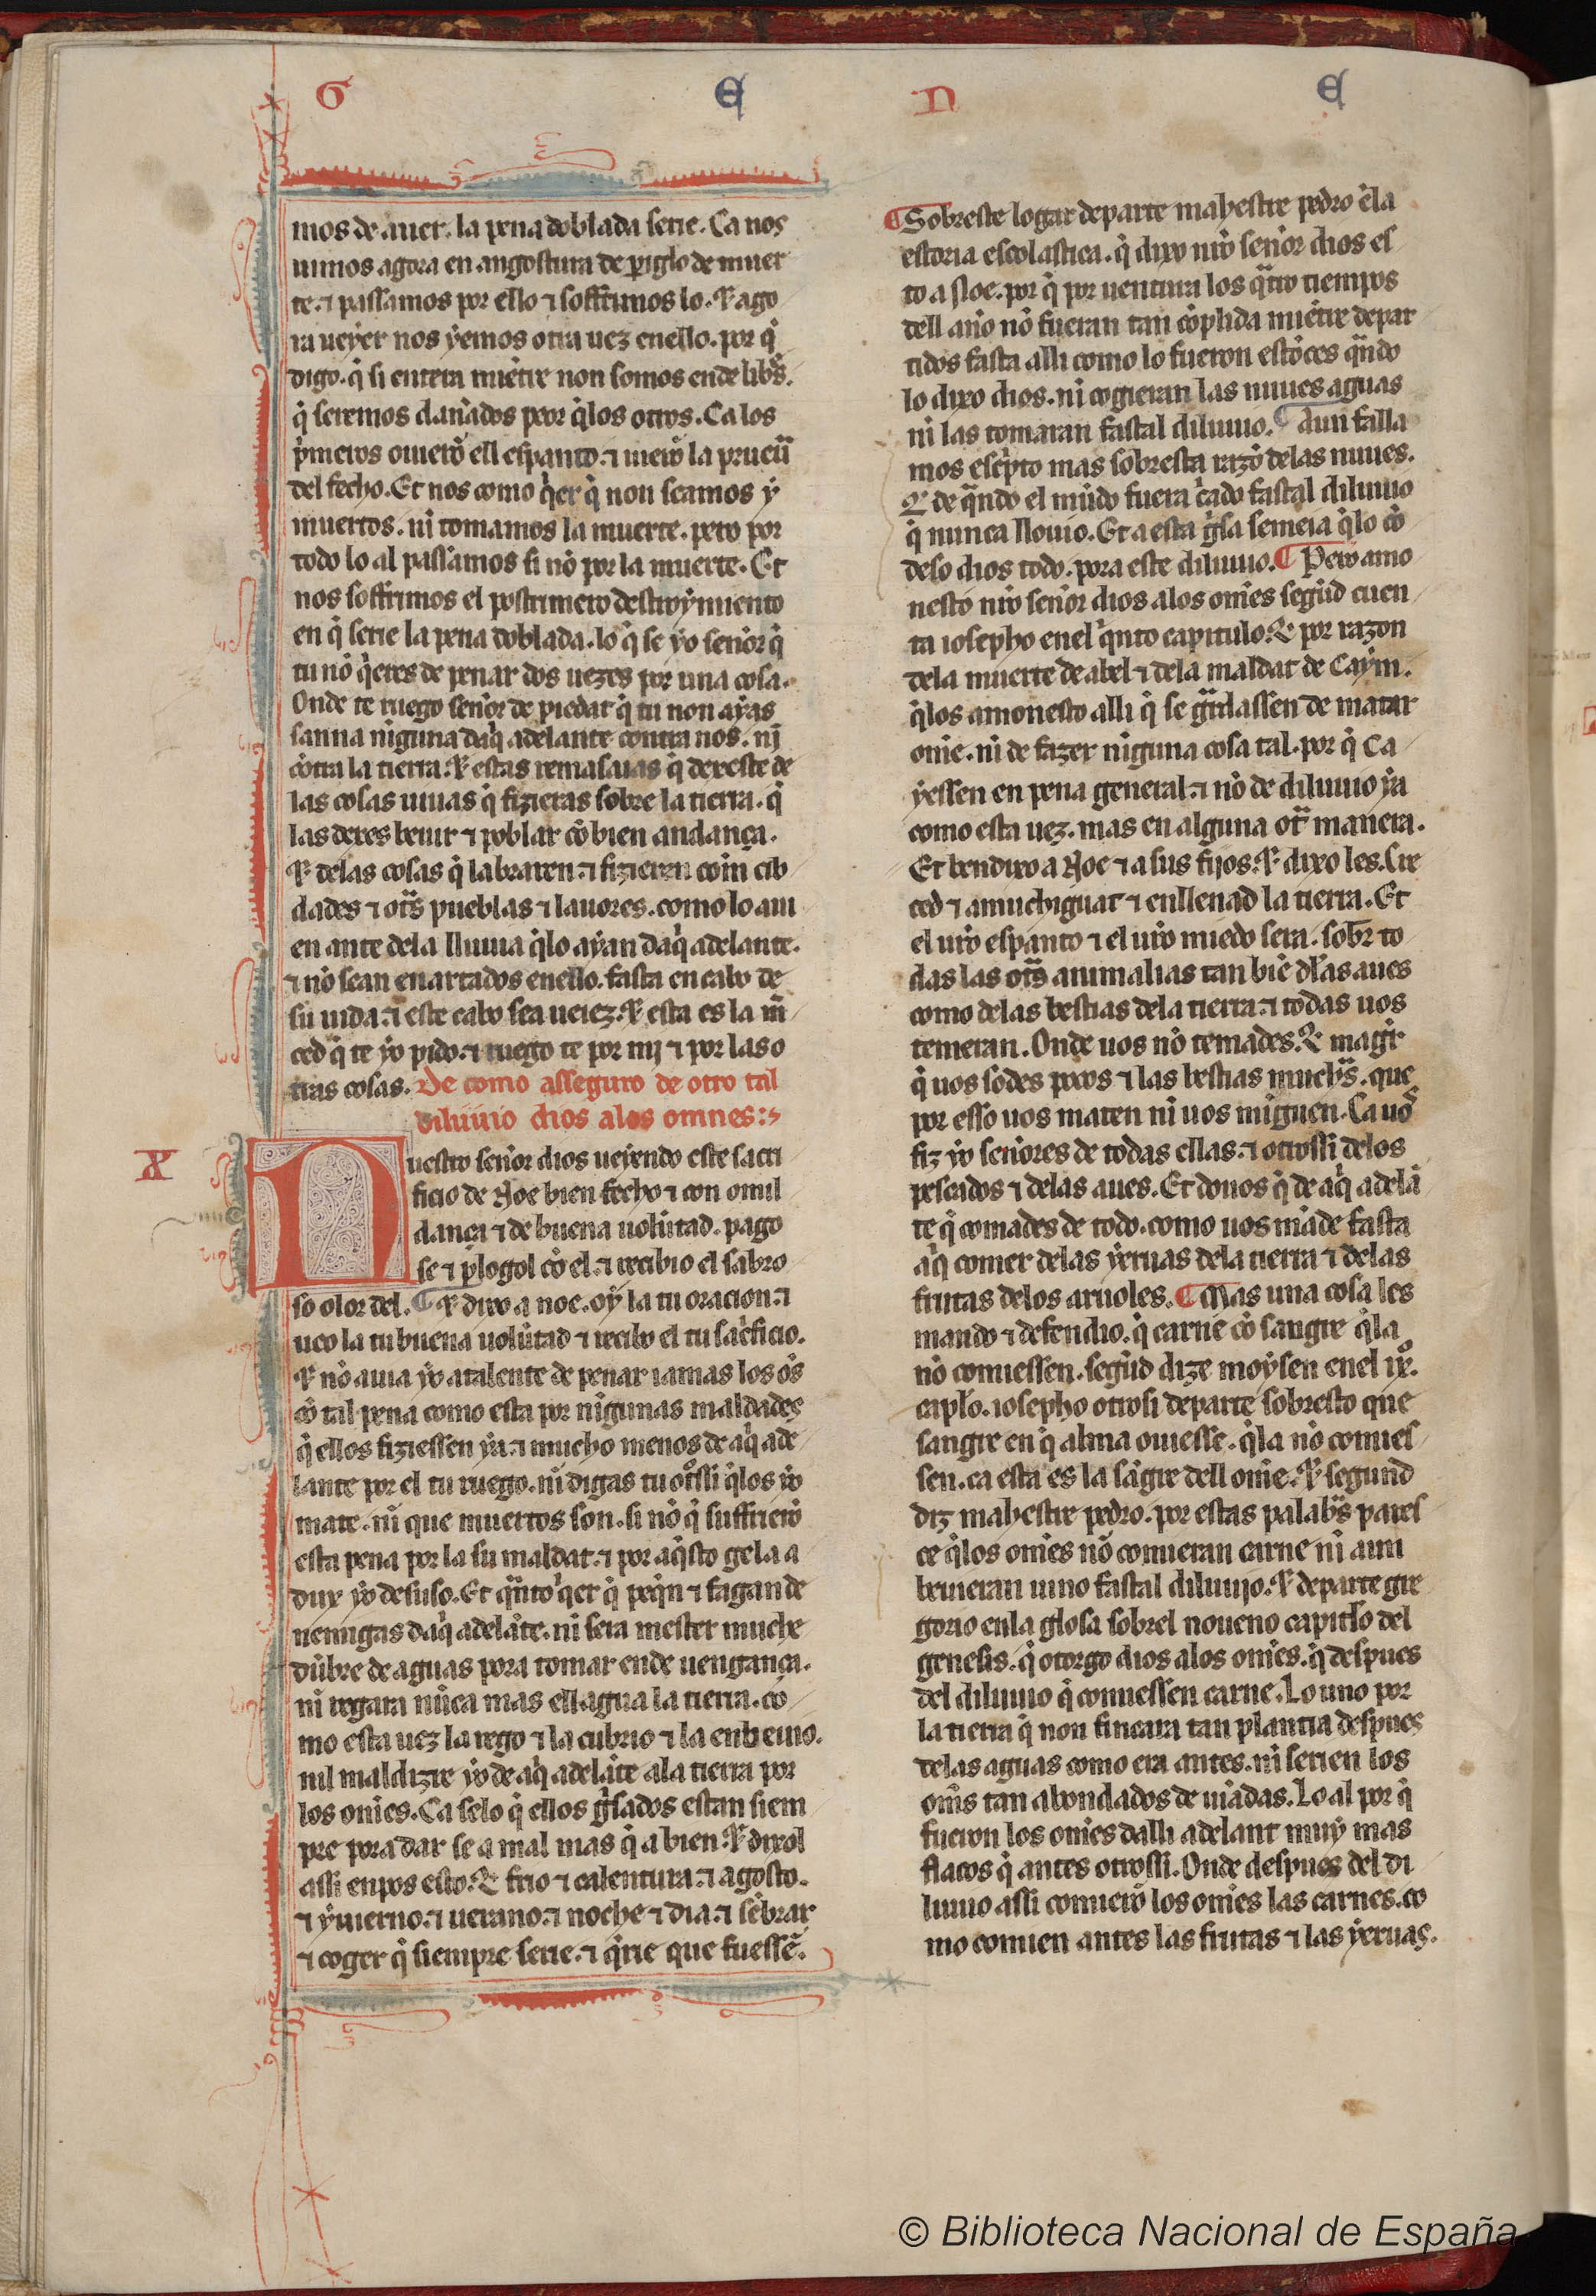 G E N E
mos de auer. la pena doblada serie. Ca nos
uimos agora en angostura de piglo de muer
te. ⁊ passamos por ello ⁊ soffrimos lo. Et ago
ra ueyer nos yemos otra uez enello. por q̇
digo. q̇ si entera miẽtre non somos ende libs̃.
q̇ seremos dañados peor q̇los otros. Ca los
pṁeros ouierõ ell espanto. ⁊ uierõ la prueũa
del fecho. Et nos como q̇er q̇ non seamos y
muertos. ni tomamos la muerte. pero por
todo lo al passamos si nõ por la muerte. Et
nos soffrimos el postrimero destroymiento
en q̇ serie la pena doblada. lo q̇ se yo señor q̇
tu nõ q̇eres de penar dos uezes por una cosa.
Onde te ruego señor de piedat q̇ tu non ayas
sanna niguna daq̇ adelante contra nos. nj
cõtra la tierra. Et estas remasaias q̇ dexeste de
las cosas uiuas q̇ fizieras sobre la tierra. q̇
las dexes beuir ⁊ poblar cõ bien andança.
Et delas cosas q̇ labraren. ⁊ fizieren com̃ cib
dades ⁊ otr̃s pueblas ⁊ lauores. como lo auı
en ante dela lluuia q̇lo ayan daq̇ adelante.
⁊ nõ sean enartados enello. fasta en cabo de
su uida. ⁊ este cabo sea uejez. Et esta es la m̃
ced q̇ te yo pido. ⁊ ruego te por mj ⁊ por las o
tras cosas. De como asseguro de otro tal
diluuio dios alos omnes:
X
Nuestro señor dios ueyendo este sacri
ficio de Noe bien fecho ⁊ con omil
dança ⁊ de buena uolũtad. pago
se ⁊ plogol cõ el. ⁊ recibio el sabro
so olor del. ¶ Et dixo a noe. oy la tu oracion. ⁊
ueo la tu buena uolũtad ⁊ recibo el tu sacͥficio.
Et nõ auia yo atalente de penar iamas los oẽs
cõ tal pena como esta por nigunas maldades
q̇ ellos fiziessen ya. ⁊ mucho menos de aq̇ ade
lante por el tu ruego. ni digas tu otͦssi q̇los yo
mate. ni que muertos son. si nõ q̇ suffrierõ
esta pena por la su maldat. ⁊ por aq̇sto gela a
dux yo desuso. Et qͣnto q̇er q̇ peq̃n ⁊ fagan de
nemigas daq̇ adelãte. ni sera mester muche
dũbre de aguas pora tomar ende uengança.
ni regara nũca mas ell agua la tierra. co
mo esta uez la rego ⁊ la cubrio ⁊ la enbeuio.
nil maldizre yo de aq̇ adelãte ala tierra por
los omẽs. Ca selo q̇ ellos gͥsados estan siem
pre pora dar se a mal mas q̇ a bien. Et dixol
assi enpos esto. Et frio ⁊ calentura. ⁊ agosto.
⁊ yuierno. ⁊ uerano. ⁊ noche ⁊ dia. ⁊ sẽbrar
⁊ coger q̇ siempre serie. ⁊ q̇rie que fuessẽ.
¶ Sobreste logar departe mahestre pedro ẽla
estoria escolastica. q̇ dixo nr̃o señor dios es
to a Noe. por q̇ por uentura los qͣtro tiempos
dell año nõ fueran tan cõplida miẽtre depar
tidos fasta alli como lo fueron estõces qͣndo
lo dixo dios. ni cogieran las nuues aguas
ni las tomaran fastal diluuio. ¶ Aun falla
mos escͥpto mas sobresta razõ delas nuues.
Et de qͣndo el mũdo fuera cͥado fastal diluuio
q̇ nunca llouio. Et a esta gͥsa semeia q̇lo cõ
deso dios todo. pora este diluuio. ¶ Pero amo
nesto nr̃o señor dios alos omẽs segũd cuen
ta iosepho enel qͥnto capitulo. Et por razon
dela muerte de abel ⁊ dela maldat de Caym.
q̇los amonesto alli q̇ se gͣrdassen de matar
omẽ. ni de fazer niguna cosa tal. por q̇ Ca
yessen en pena general. ⁊ nõ de diluuio ya
como esta uez. mas en alguna otͣ manera.
Et bendixo a Noe ⁊ a sus fijos. Et dixo les. Cre
ced ⁊ amuchiguat ⁊ enllenad la tierra. Et
el ur̃o espanto ⁊ el ur̃o miedo sera. sobr̃ to
das las otr̃s animalias tan biẽ dl̃as aues
como delas bestias dela tierra. ⁊ todas uos
temeran. Onde uos nõ temades. Et magͥr
q̇ uos sodes pocos ⁊ las bestias muchͣs. que
por esso uos maten ni uos miguen. Ca uoˢ
fiz yo señores de todas ellas. ⁊ otrossi delos
pescados ⁊ delas aues. Et douos q̇ de aq̇ adelã
te q̇ comades de todo. como uos mãde fasta
aq̇ comer delas yeruas dela tierra ⁊ delas
frutas delos aruoles. ¶ Mas una cosa les
mando ⁊ defendio. q̇ carne cõ sangre q̇la
nõ comiessen. segũd dize moysen enel ixͦ.
capl̃o. iosepho otrosi departe sobresto que
sangre en q̇ alma ouiesse. q̇la nõ comies
sen. ca esta es la sãgre dell omẽ. Et segund
diz mahestre pedro. por estas palabͣs pares
ce q̇los omẽs nõ comieran carne ni aun
beuieran uino fastal diluuio. Et departe gre
gorio enla glosa sobrel noueno capitl̃o del
genesis. q̇ otorgo dios alos omẽs. q̇ despues
del diluuio q̇ comiessen carne. Lo uno por
la tierra q̇ non fincara tan plantia despues
delas aguas como era antes. ni serien los
omẽs tan abondados de uiãdas. Lo al por q̇
fueron los omẽs dalli adelant muy mas
flacos q̇ antes otrossi. Onde despues del di
luuio assi comierõ los omẽs las carnes. co
mo comien antes las frutas ⁊ las yeruas.
© Biblioteca Nacional de España